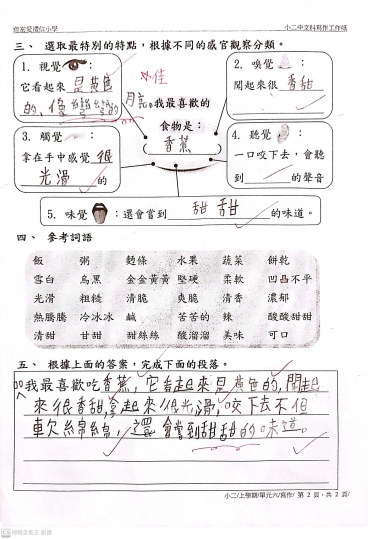 小二中文科寫作工作紙
三、 選取最特別的特點，根據不同的感官觀察分類。
1. 視覺 ：
它看起來 是黃色
的，像 的
佳
2. 嗅覺 ：
聞起來很 香甜
我最喜歡的
食物是：
香蕉
3. 觸覺 ：
拿在手中感覺 很
光滑 的
4. 聽覺 ：
一口咬下去，會聽
到 的聲音
5. 味覺 ：還會嘗到 甜甜 的味道。
四、 參考詞語
飯 粥 麪條 水果 蔬菜 餅乾
雪白 烏黑 金金黃黃 堅硬 柔軟 凹凸不平
光滑 粗糙 清脆 爽脆 清香 濃郁
熱騰騰 冷冰冰 鹹 苦苦的 辣 酸酸甜甜
清甜 甘甜 甜絲絲 酸溜溜 美味 可口
五、 根據上面的答案，完成下面的段落。
我最喜歡吃香蕉，它看起來是黃色的，聞起
來很香甜，拿起來很光滑，咬下去不但
軟綿綿，還會嘗到甜甜的味道。
小二/上學期/單元六/寫作/ 第 2 頁，共 2 頁/